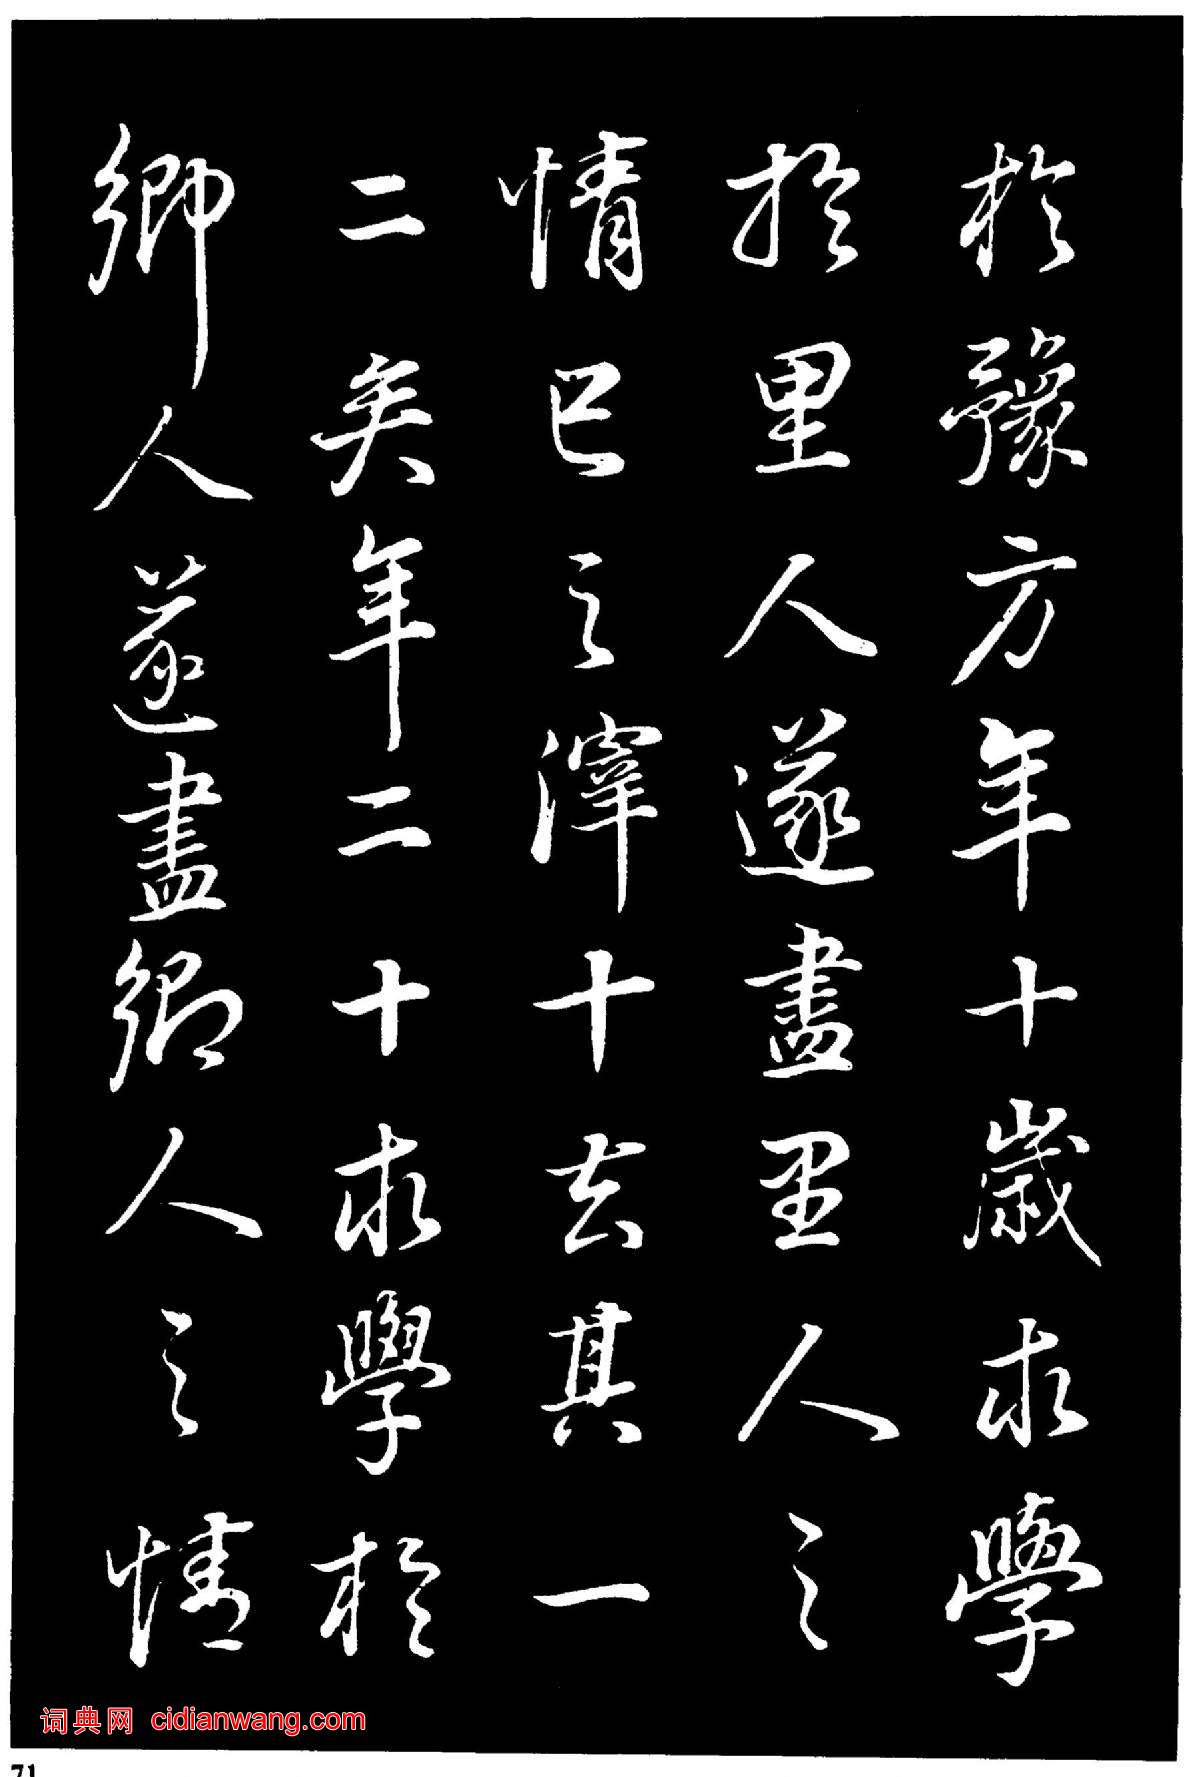 於豫方年十歲求學
於里人遂盡里人之
情已之滓十去其一
二矣年二十求學於
鄉人遂盡鄉人之情
词典网 cidianwang.com
71